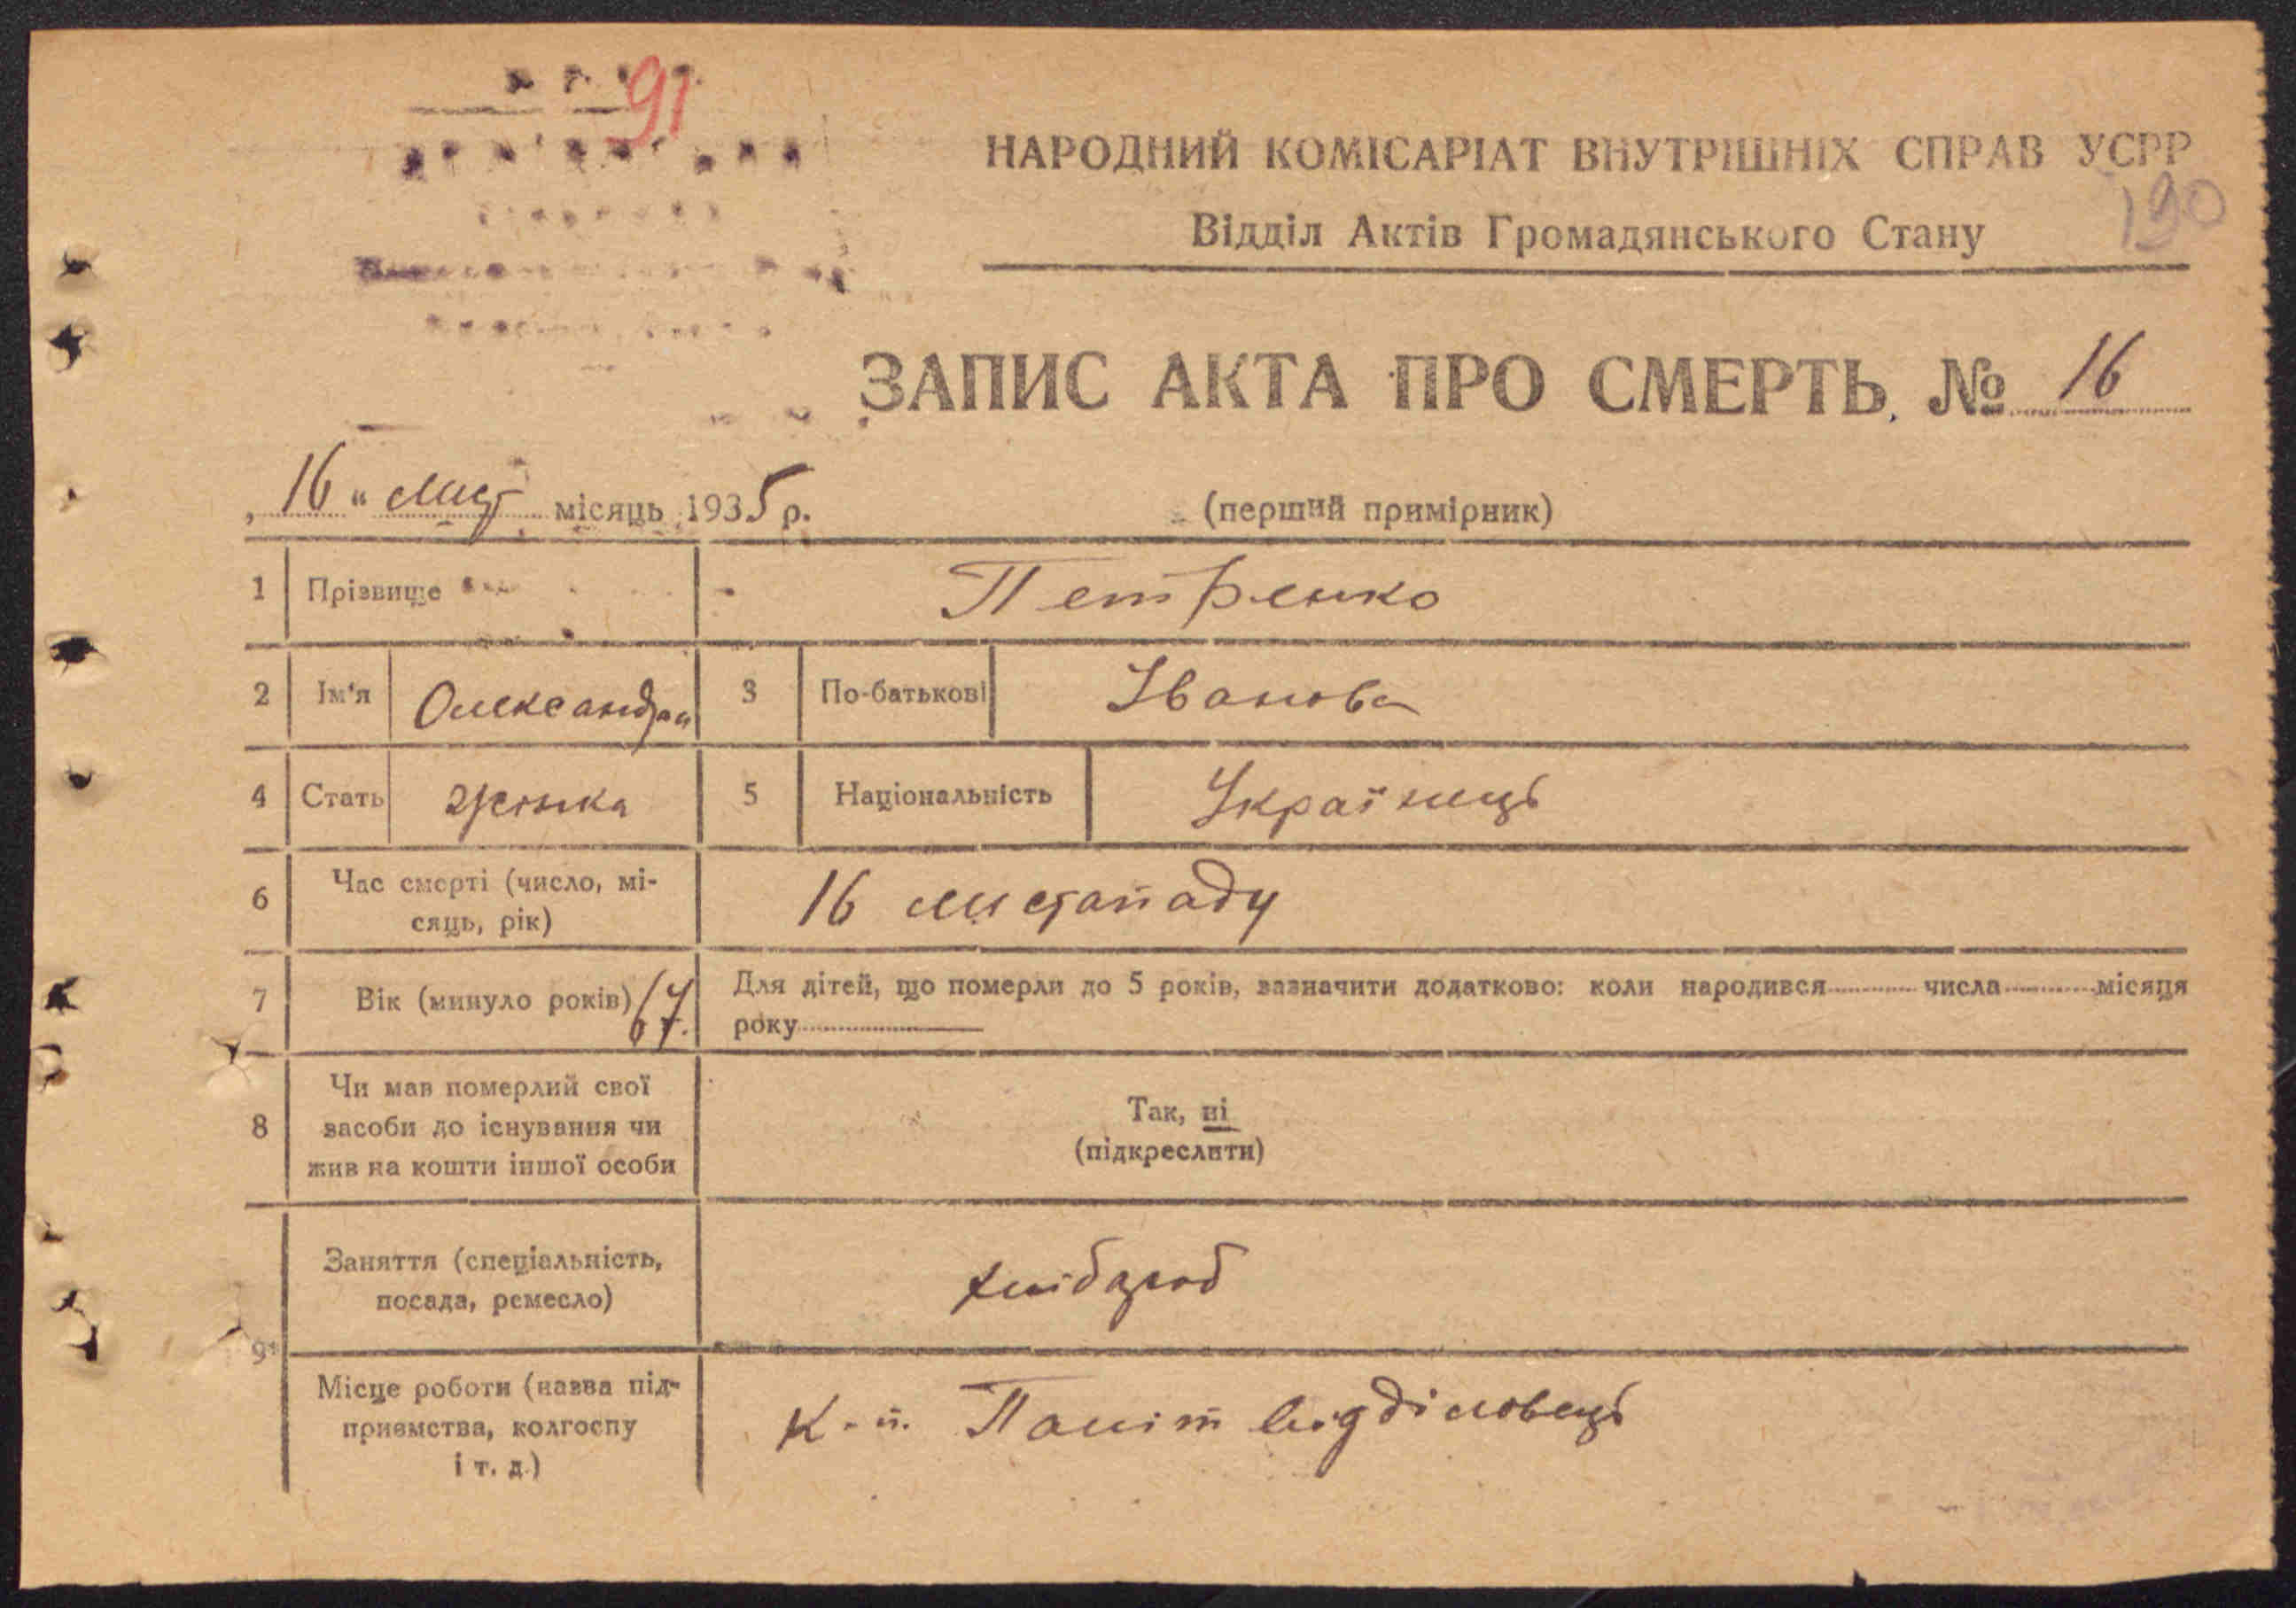 91
НАРОДНИЙ КОМІСАРІАТ ВНУТРІШНІХ СПРАВ УСРР
190
Відділ Актів Громадянського Стану
ЗАПИС АКТА ПРО СМЕРТЬ № 16
„16“ лист місяць 1935 р. (перший примірник)
1 Прізвище Петренко
2 Ім'я Олександра 3 По-батькові Іванова
4 Стать жінка 5 Національність Українець
6 Час смерті (число, мі-
сяць, рік) 16 листападу
7 Вік (минуло років) 67. Для дітей, що померли до 5 років, зазначити додатково: коли народився числа місяця
року
8 Чи мав померлий свої
засоби до існування чи
жив на кошти іншої особи
Так, ні
(підкреслити)
9 Заняття (спеціальність,
посада, ремесло) хлібароб
Місце роботи (назва під-
приємства, колгоспу
і т. д.) К-п. Політвідділовець